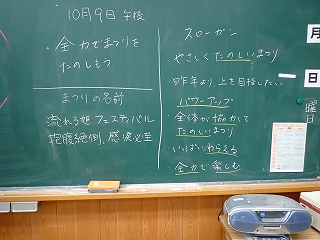 10月9日 午後
・全力でまつりを
たのしもう。
まつりの名前
流れる旭フェスティバル
抱腹絶倒、感涙必至
スローガン
・やさしくたのしいまつり
昨年より上を目指したい
パワーアップ
全体が協力して
たのしいまつり
いっぱいわらえる
全力で楽しむ
月
日
曜日